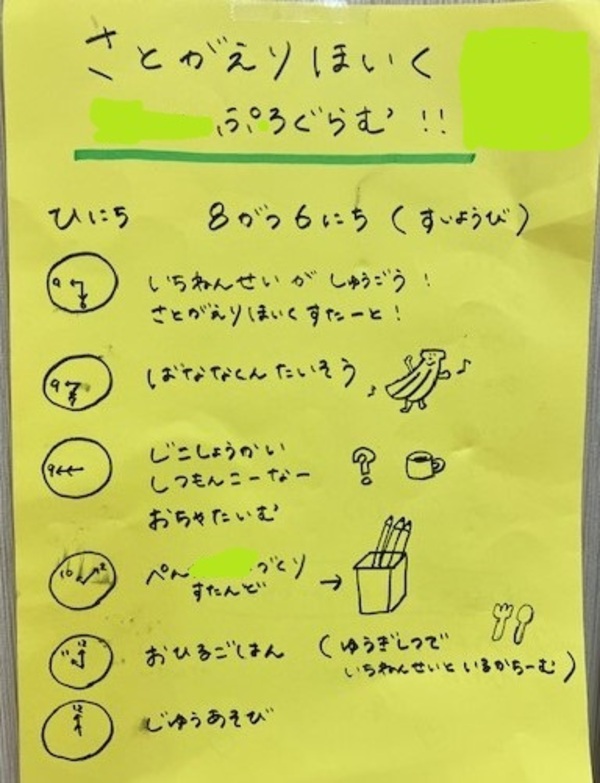 さとがえりほいく
ぷろぐらむ!!
ひにち 8がつ6にち(すいようび)
9 6
いちねんせいが しゅうごう!
さとがえりほいくすたーと!
9
ばななくんたいそう
9
じこしょうかい
しつもんこーなー
おちゃたいむ
?
10 2
ぺん づくり
すたんど
→
12
11
おひるごはん (ゆうぎしつで
いちねんせいと いるかちーむ)
12
じゆうあそび